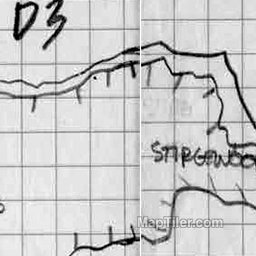 D3
STIRGEWOO
MapTiler.com